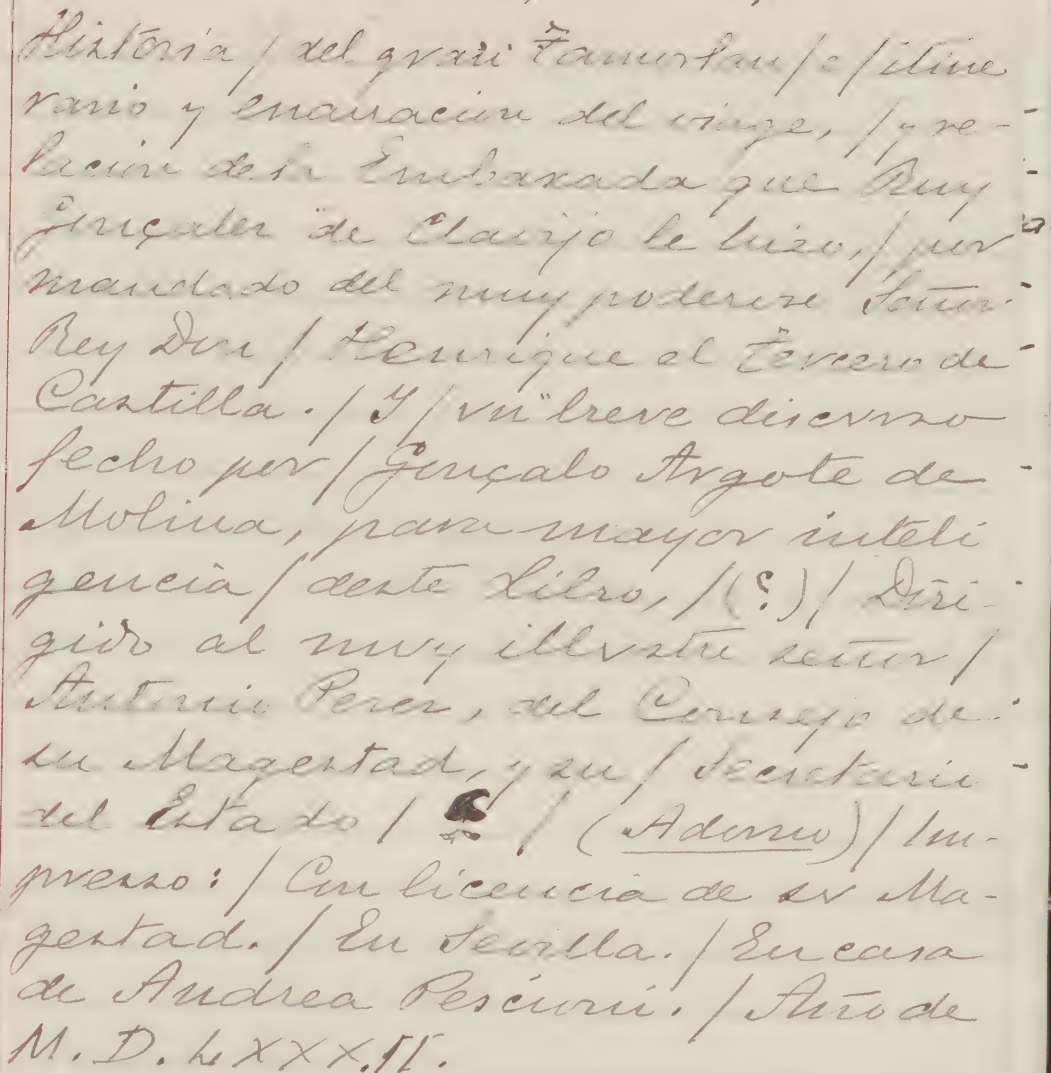 Historia / del gran Tamorlan / e / itine
rario y enarracion del viage, / y re-
lacion de la Embaxada que Ruy
Gonçalez de Clavijo le hizo, / por
mandado del muy poderoso Señor
Rey Don / Henrique el Tercero de
Castilla. / Y / vn breve discvrso
fecho por / Gonçalo Argote de
Molina, para mayor inteli
gencia / deste Libro, / (?) / Diri-
gido al mvy illvstre señor /
Antonio Perez, del Consejo de
su Magestad, y su / Secretario
del Estado / / (Adorno) / Im-
presso: / Con licencia de sv Ma-
gestad. / En Sevilla. / En casa
de Andrea Pescioni. / Año de
M. D. LXXXII.